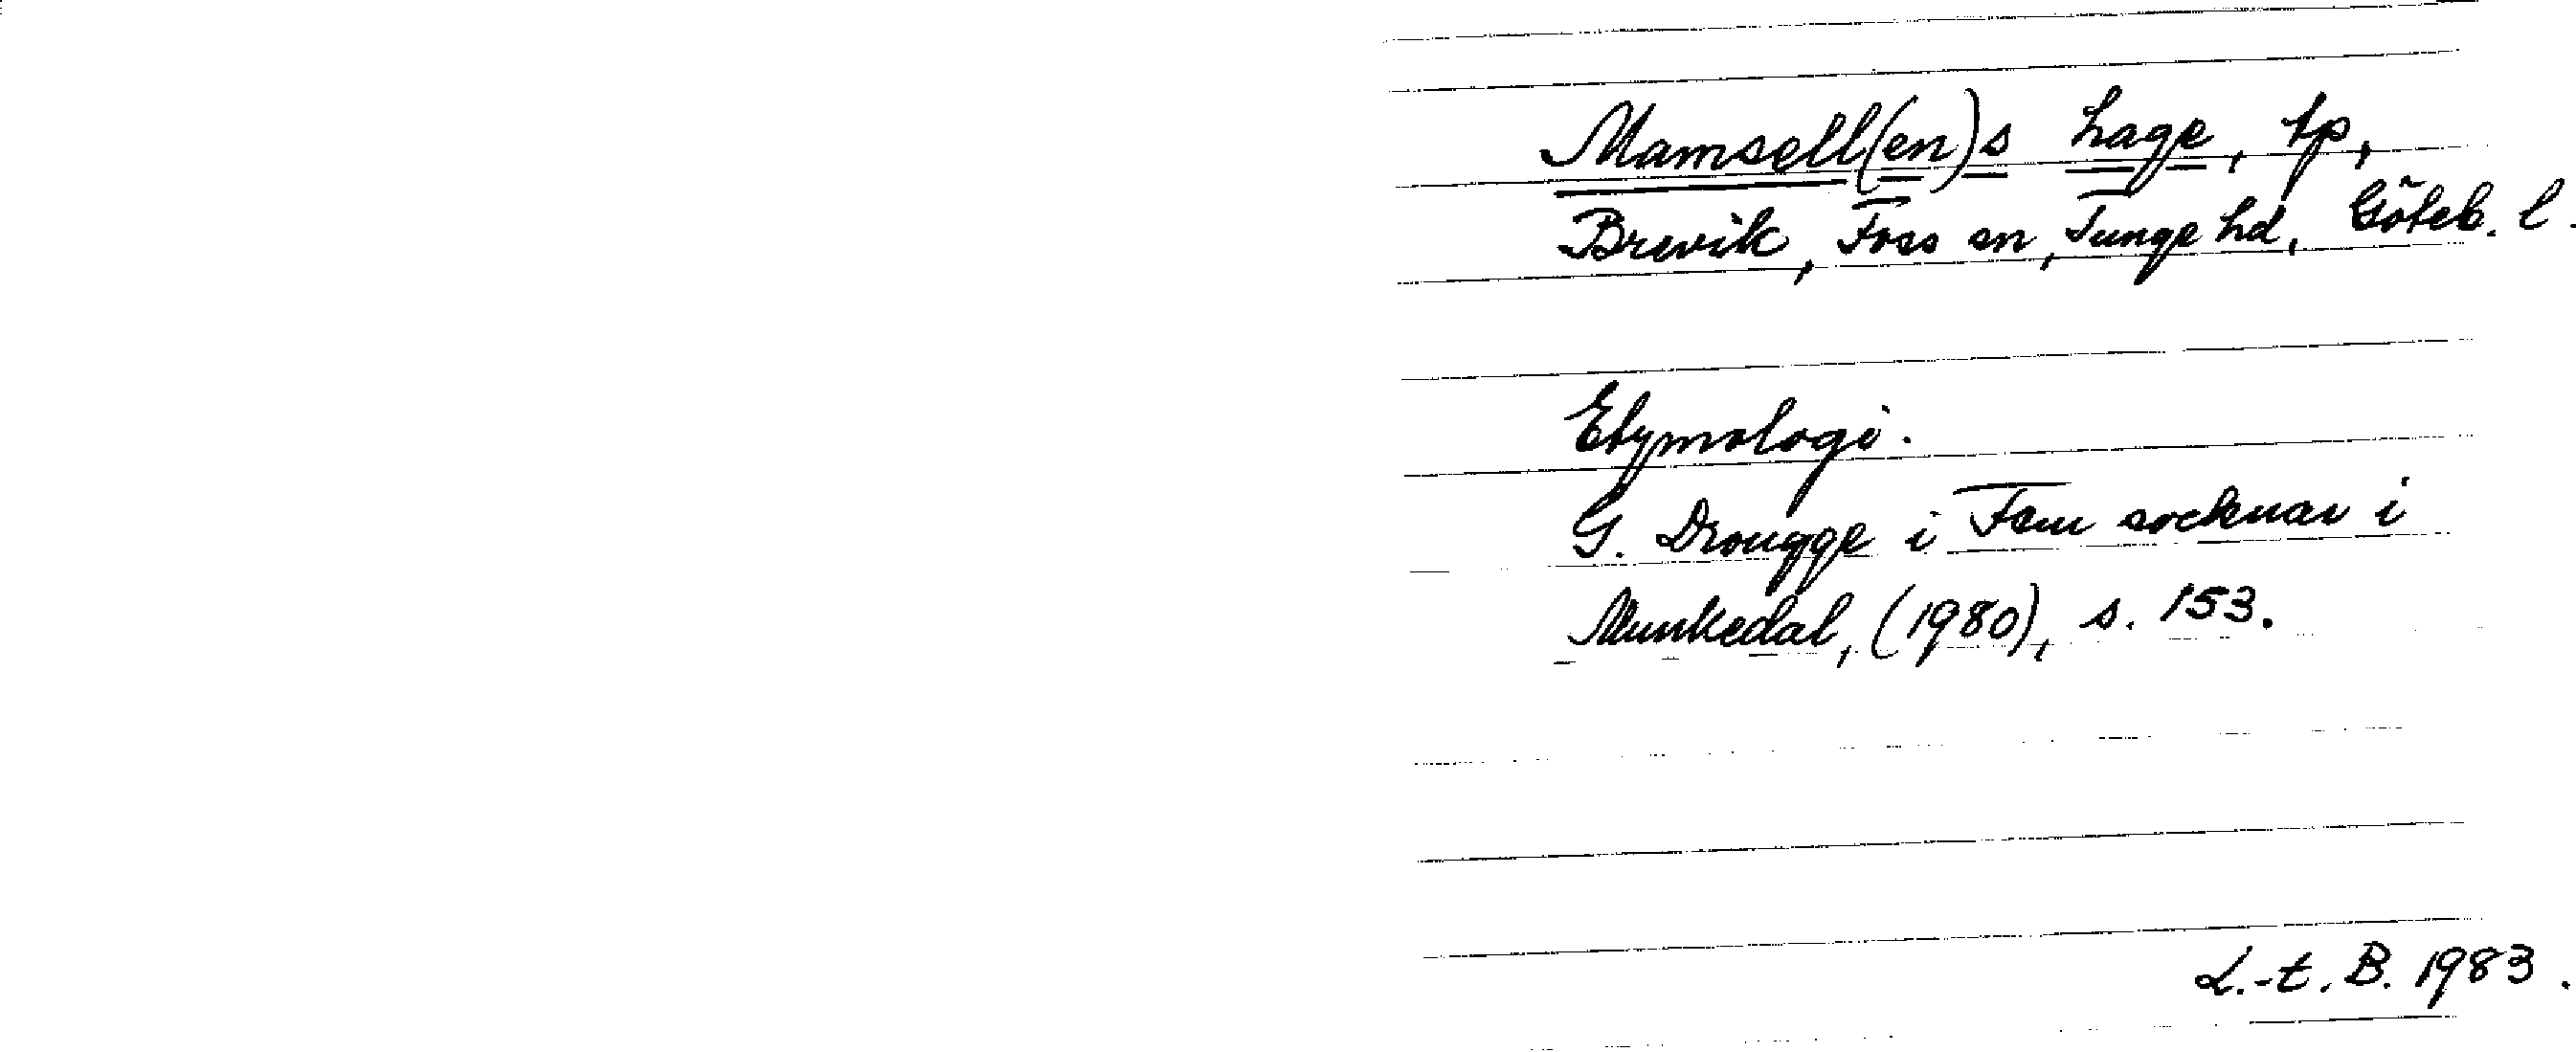 Mamsell(en)s hage, tp,
Brevik, Foss sn, Tunge hd, Göteb. l.
Etymologi.
G. Drougge i Fem socknar i
Munkedal, (1980), s. 153.
L.-t. B. 1983.